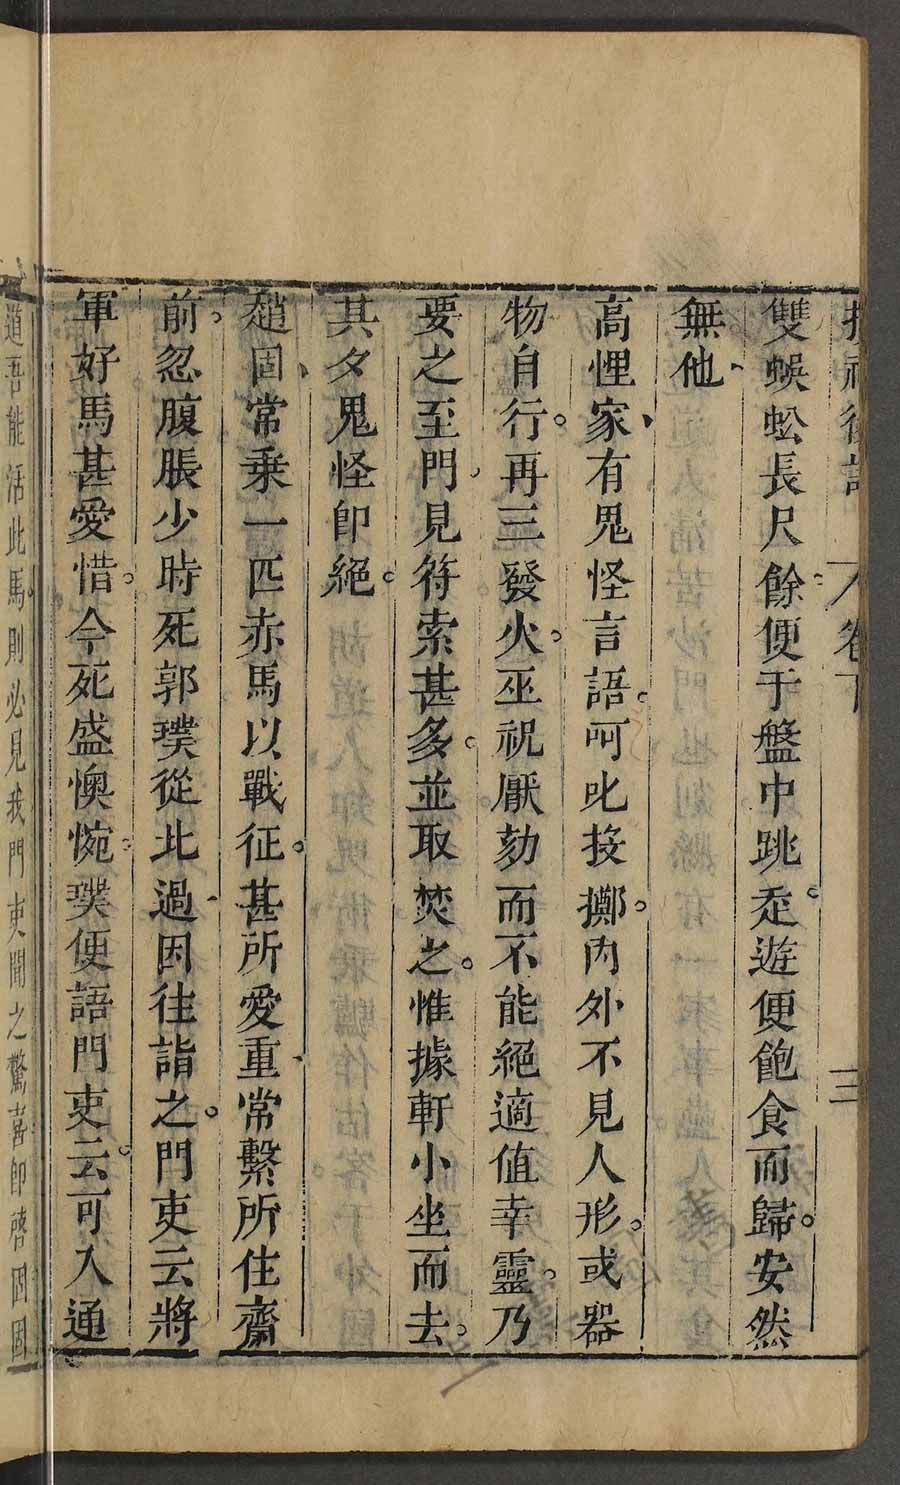 搜神後記 卷下 三
雙蜈蚣長尺餘便于盤中跳走遊便飽食而歸安然
無他
高悝家有鬼怪言語呵叱投擲內外不見人形或器
物自行再三發火巫祝厭劾而不能絕適值幸靈乃
要之至門見符索甚多並取焚之惟據軒小坐而去
其夕鬼怪卽絕
趙固常乘一匹赤馬以戰征甚所愛重常繫所住齋
前忽腹脹少時死郭璞從北過因往詣之門吏云將
軍好馬甚愛惜今死盛懊惋璞便語門吏云可入通
道吾能活此馬則必見我門吏聞之驚喜卽啓固固